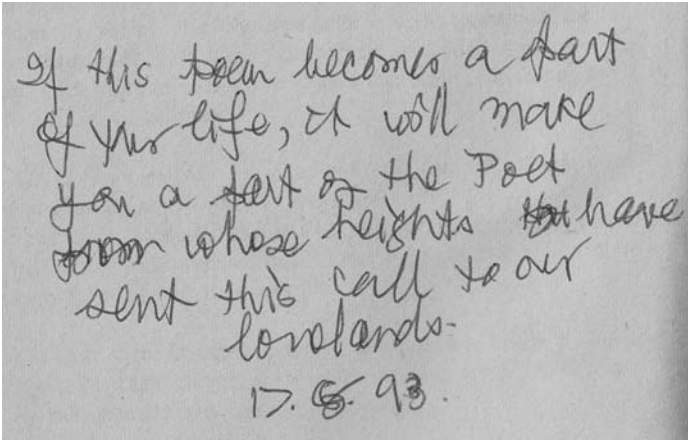 If this poem becomes a part
of your life, it will make
you a part of the Poet
from whose heights have
sent this call to our
lowlands.
17. 93.